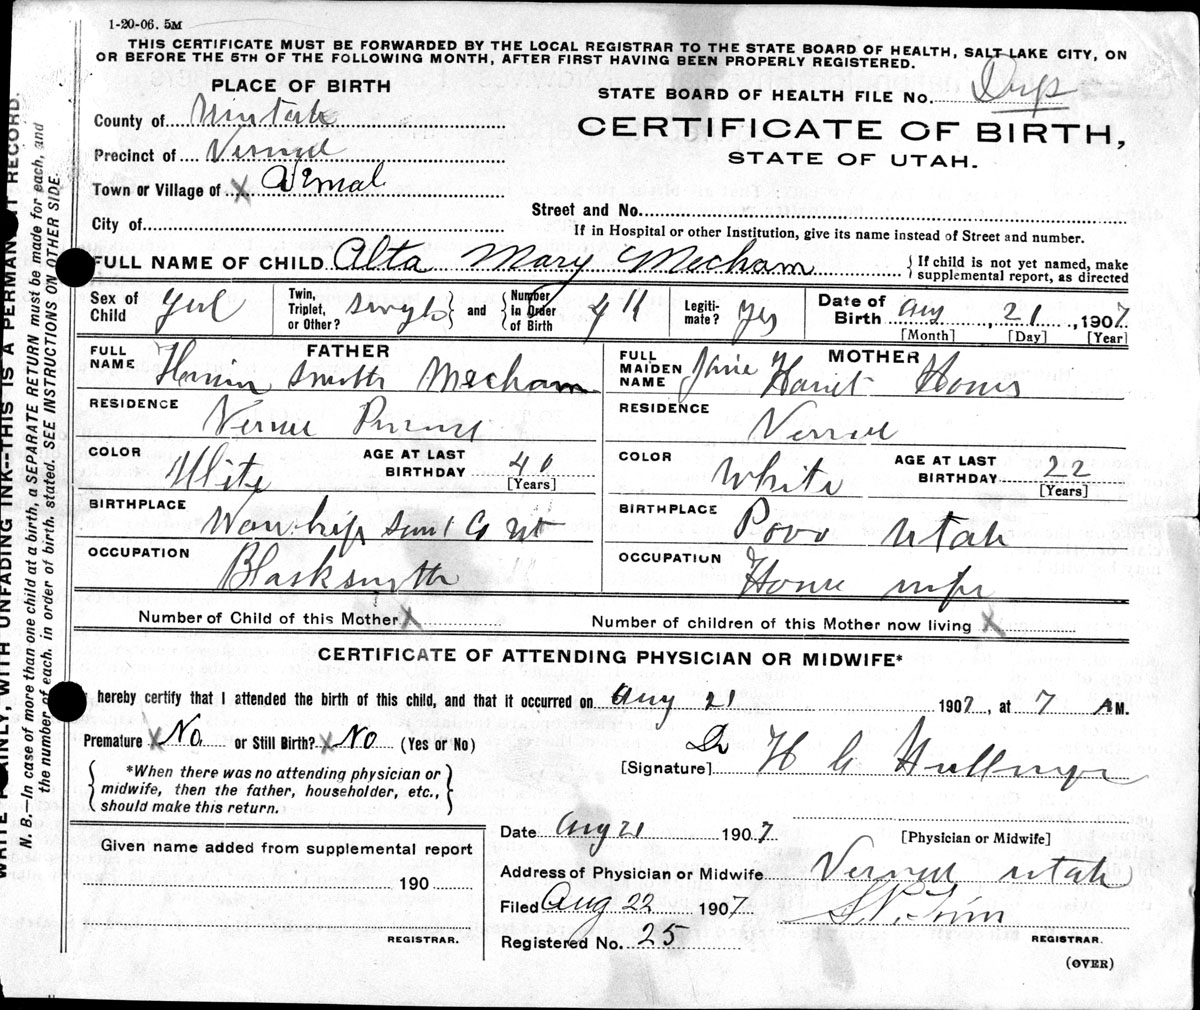 1-20-06. 5M
THIS CERTIFICATE MUST BE FORWARDED BY THE LOCAL REGISTRAR TO THE STATE BOARD OF HEALTH, SALT LAKE CITY, ON
OR BEFORE THE 5TH OF THE FOLLOWING MONTH, AFTER FIRST HAVING BEEN PROPERLY REGISTERED.
PLACE OF BIRTH
STATE BOARD OF HEALTH FILE No. Dup
County of Uintah
CERTIFICATE OF BIRTH,
STATE OF UTAH.
Precinct of Vernal
Town or Village of X Vernal
Street and No.
City of
If in Hospital or other Institution, give its name instead of Street and number.
FULL NAME OF CHILD Alta Mary Mecham { If child is not yet named, make supplemental report, as directed
Sex of Child Girl Twin, Triplet, or Other? single } and { Number In Order of Birth 4th Legiti- mate? Yes Date of Birth Aug, 21, 1907
[Month] [Day] [Year]
FATHER
FULL NAME Smith Mecham
MOTHER
FULL MAIDEN NAME Jane Hariet
RESIDENCE Vernal
RESIDENCE Vernal
COLOR White AGE AT LAST BIRTHDAY 40
[Years]
COLOR White AGE AT LAST BIRTHDAY
[Years]
BIRTHPLACE Wanship Sumt Co Ut
BIRTHPLACE Povo Utah
OCCUPATION Blacksmyth
OCCUPATION House wife
Number of Child of this Mother X
Number of children of this Mother now living X
CERTIFICATE OF ATTENDING PHYSICIAN OR MIDWIFE*
hereby certify that I attended the birth of this child, and that it occurred on Aug 21 1907, at 7 AM.
Premature X No. or Still Birth? X No (Yes or No)
[Signature] Dr H G Hullinger
{ *When there was no attending physician or
midwife, then the father, householder, etc.,
should make this return. }
Date Aug 21 1907
[Physician or Midwife]
Given name added from supplemental report
190
REGISTRAR.
Address of Physician or Midwife Vernal Utah
Filed Aug 22 1907
Registered No. 25
REGISTRAR.
(OVER)
WRITE PLAINLY, WITH UNFADING INK--THIS IS A PERMANENT RECORD.
N. B.—In case of more than one child at a birth, a SEPARATE RETURN must be made for each, and
the number of each, in order of birth, stated. SEE INSTRUCTIONS ON OTHER SIDE.